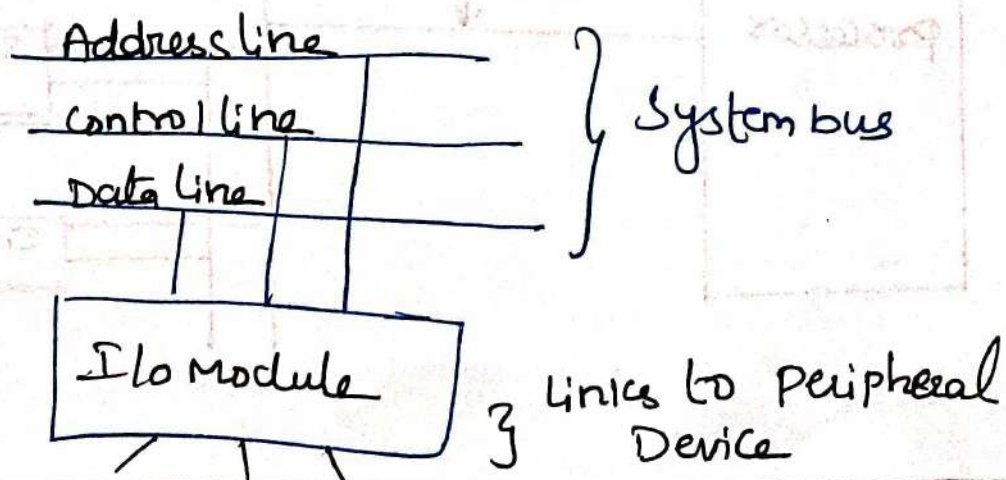 Address line
control line
Data line
System bus
I/o Module
Links to Peripheral
Device